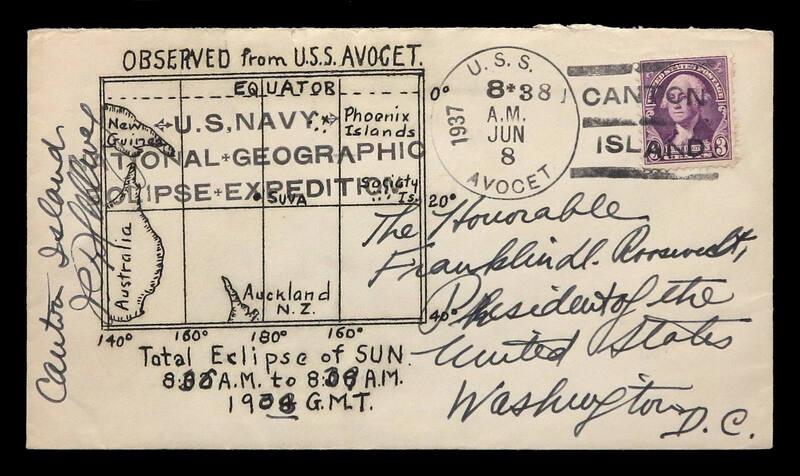 OBSERVED from U.S.S. AVOCET.
EQUATOR
0°
New Guinea
U.S. NAVY
Phoenix
Islands
TIONAL + GEOGRAPHIC
CLIPSE + EXPEDITION
Society
Is.
SUVA
20°
Australia
Auckland
N.Z.
40°
140° 160° 180° 160°
Total Eclipse of SUN.
A.M. to A.M.
G.M.T.
Canton Island
U.S.S.
8 38
A.M.
JUN
8
1937
AVOCET
CANTON
ISLAND
UNITED STATES POSTAGE
3 3
The Honorable
Franklin D. Roosevelt,
President of the
United States
Washington
D.C.